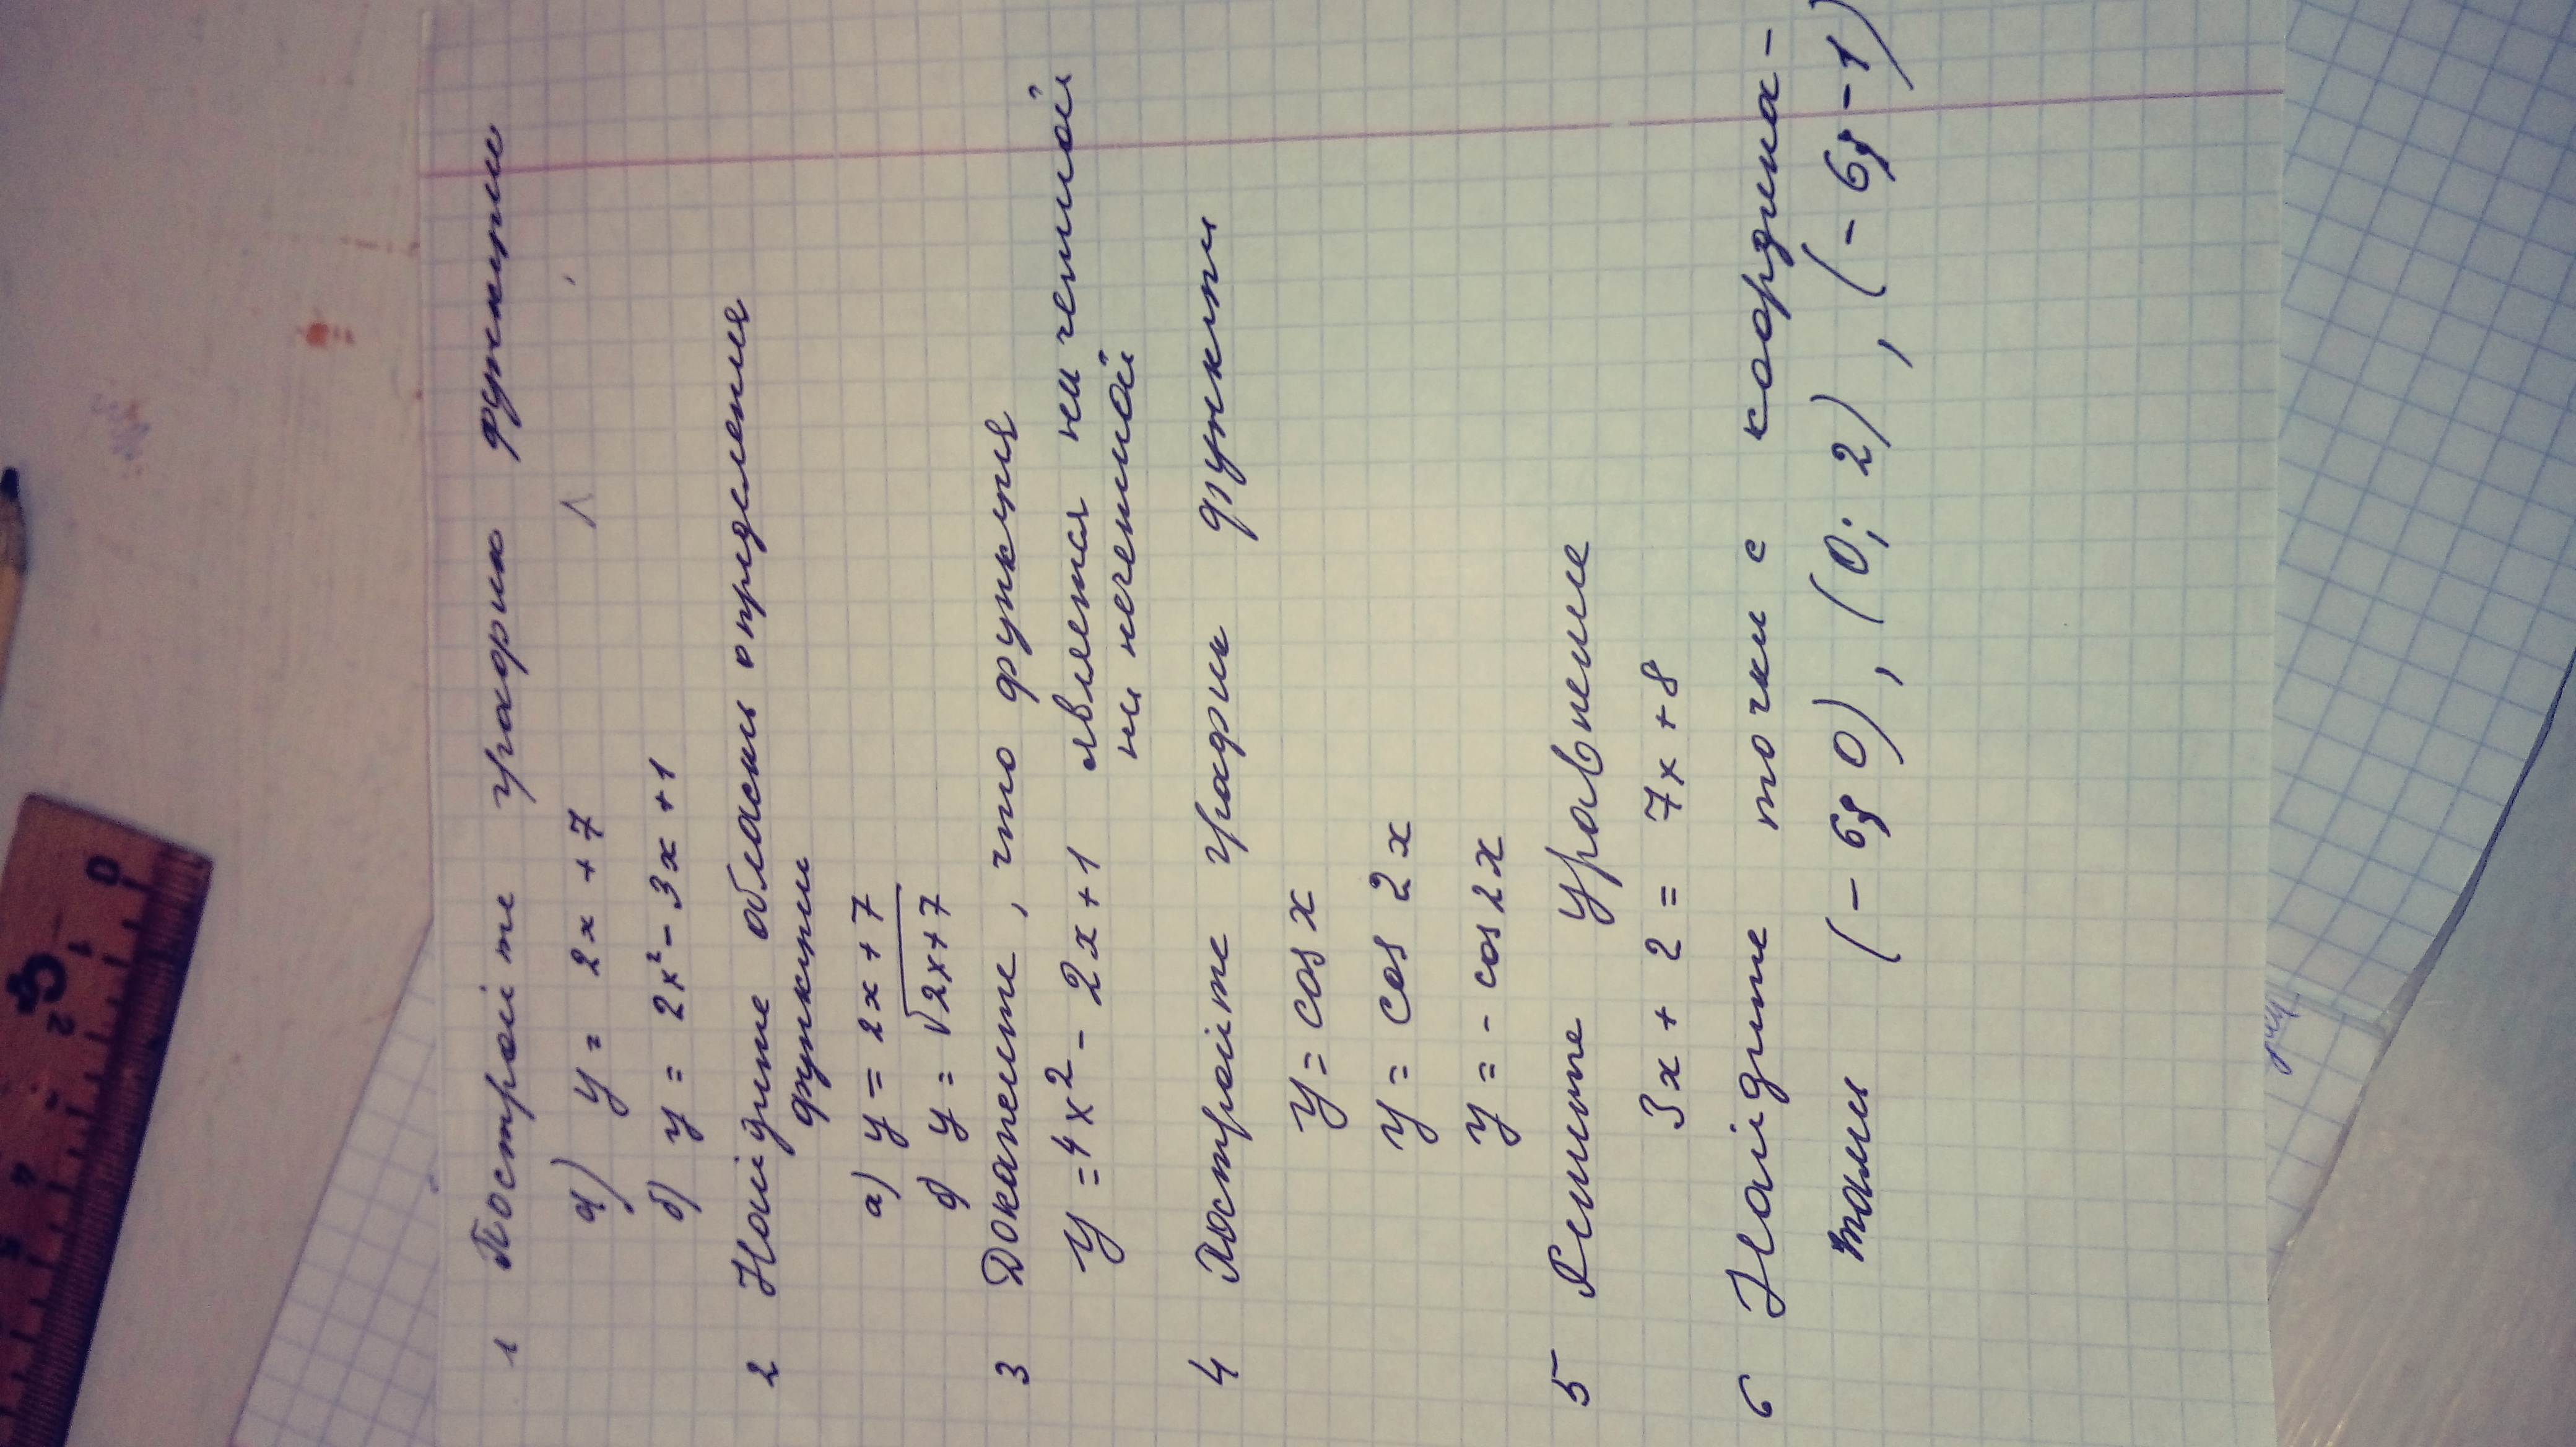 1 Постройте график функции
а) y = 2x + 7
б) y = 2x² - 3x + 1
2 Найдите область определения
функции
а) y = 2x + 7
б) y = √2x+7
3 Докажите, что функция
y = 4x² - 2x + 1 является ни четной
ни нечетной
4 Постройте график функти
y = cos x
y = cos 2x
y = - cos 2x
5 Решите уравнение
3x + 2 = 7x + 8
6 Найдите точки с координа-
тами (- 6; 0), (0; 2), (- 6; -1)
0 1 2 3 4